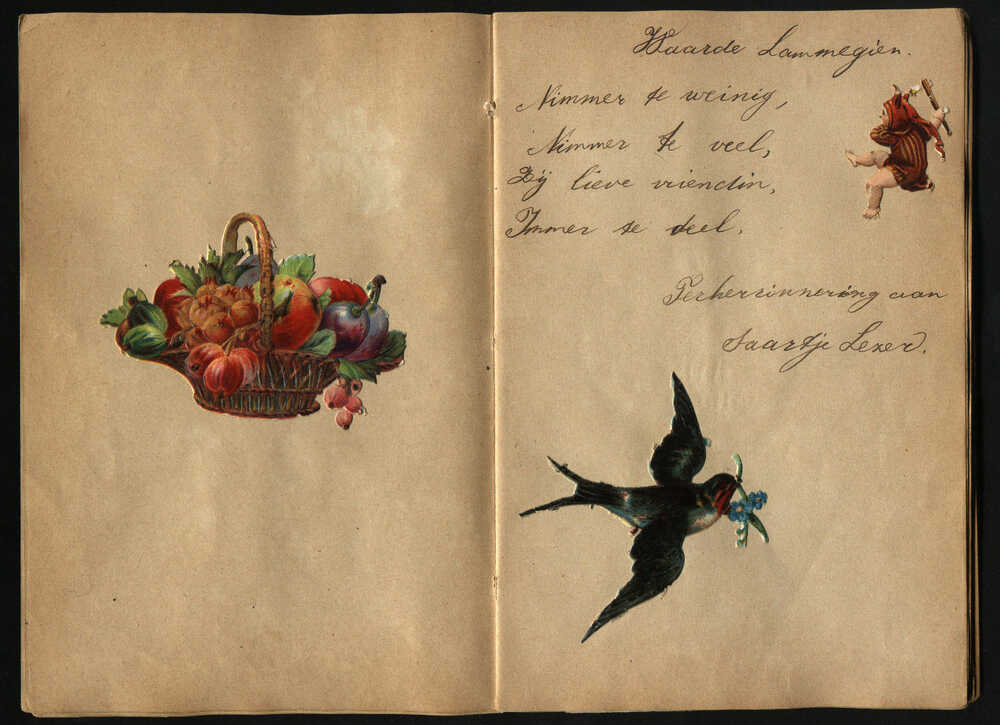 Waarde Lammegien.
Nimmer te weinig,
Nimmer te veel,
Zij lieve vriendin,
Immer te deel.
Terherrinnering aan
Saartje Lezer.